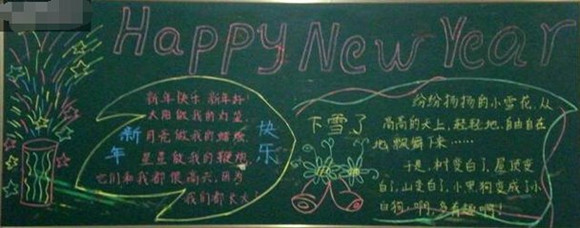 Happy New Year
新年快乐 新年好
太阳做我的灯笼
月亮做我的蜡烛
星星做我的鞭炮
它们和我都很高兴,因为
我们都长大了
新年
快乐
下雪了
纷纷扬扬的小雪花,从
高高的天上,轻轻地,自由自在
地飘落下来……
于是,树变白了,屋顶变
白了,山变白了,小黑狗变成了小
白狗,啊,多有趣啊!